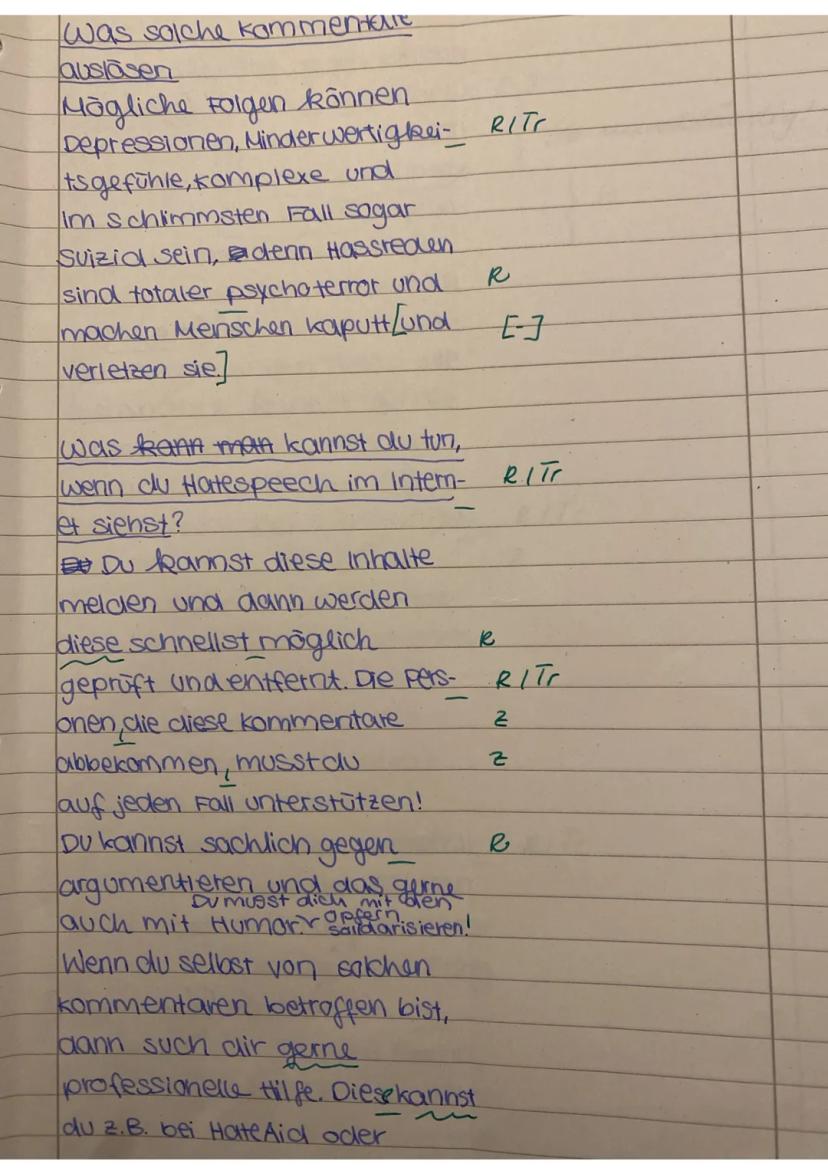 Was solche Kommentare
auslösen
Mögliche Folgen können
Depressionen, Minderwertigkei- R/Tr
tsgefühle, Komplexe und
im schimmsten Fall sogar
Suizid sein, denn Hassreden
sind totaler psychoterror und R
machen Menschen kaputt [und [-]
verletzen sie.]
Was kann man kannst du tun,
wenn du Hatespeech im Intern- R/Tr
et siehst?
Du kannst diese Inhalte
melden und dann werden
diese schnellst möglich R
geprüft und entfernt. Die Pers- R/Tr
onen, die diese Kommentare Z
abbekommen, musst du Z
auf jeden Fall unterstützen!
Du kannst sachlich gegen R
argumentieren und das gerne
auch mit Humor. Du musst dich mit den
Opfern
solidarisieren!
Wenn du selbst von solchen
Kommentaren betroffen bist,
dann such dir gerne
professionelle Hilfe. Diese kannst
du z.B. bei HateAid oder